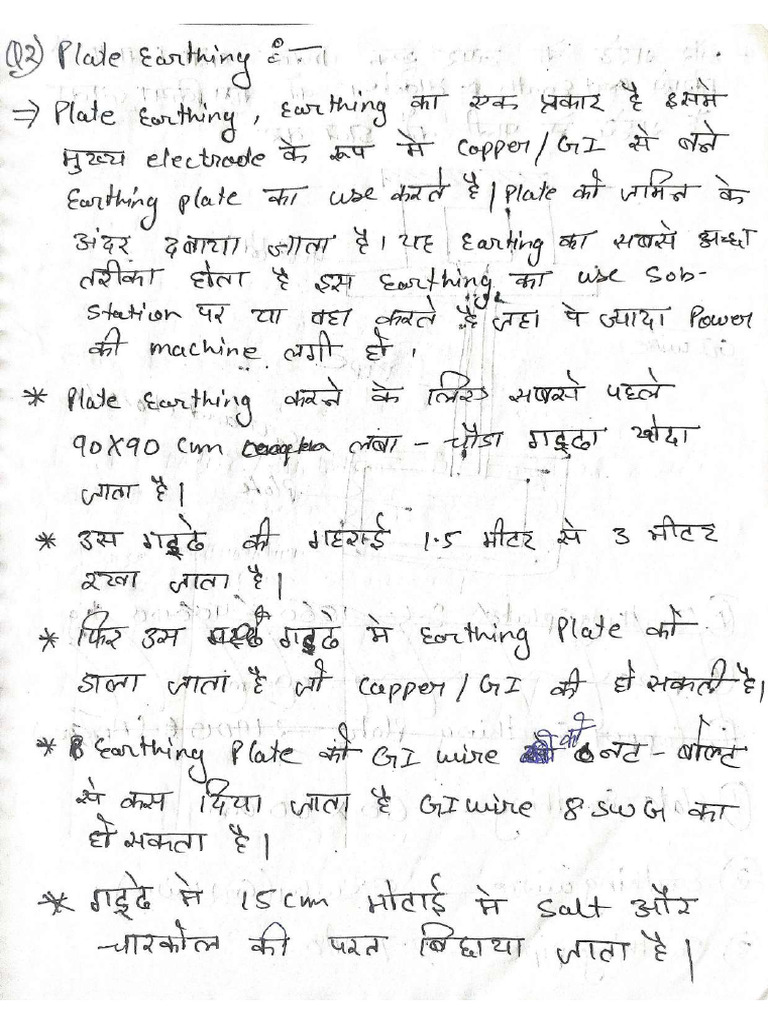 Q2) Plate Earthing :-
⇒ Plate Earthing, Earthing का एक प्रकार है इसमे
मुख्य electrode के रूप मे Copper/GI से बने
Earthing plate का use करते है। Plate को जमिन के
अंदर दबाया जाता है। यह Earting का सबसे अच्छा
तरीका होता है इस Earthing का use Sob-
Station पर या वहा करते है जहा पे ज्यादा Power
की machine लगी हो।
* Plate Earthing करने के लिए सबसे पहले
90X90 cm लंबा - चौडा गड्ढा खोदा
जाता है।
* उस गड्ढे की गहराई 1.5 मीटर से 3 मीटर
रखा जाता है।
* फिर उस गड्ढे मे Earthing Plate को
डाला जाता है जो Copper/GI की हो सकती है।
* Earthing Plate को GI wire को नट - बोल्ट
से कस दिया जाता है GI wire 8 SWG का
हो सकता है।
* गड्ढे मे 15cm मोटाई मे Salt और
चारकोल की परत बिछाया जाता है।